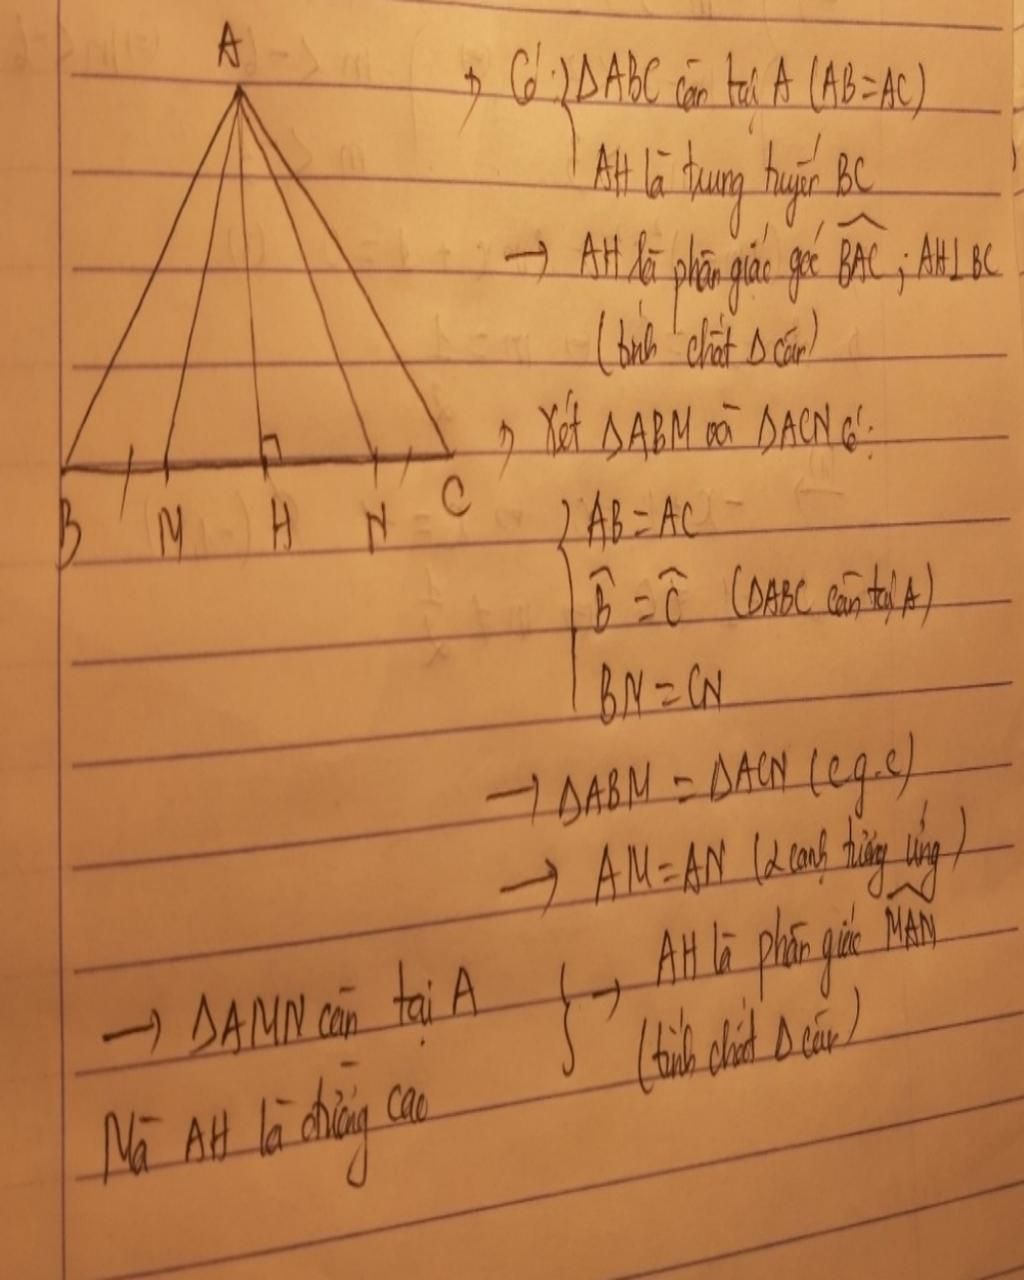 A
B M H N C
Có: { ΔABC cân tại A (AB=AC)
AH là trung tuyến BC
→ AH là phân giác góc BAC ; AH⊥BC
(tính chất Δ cân)
Xét ΔABM và ΔACN có:
{ AB = AC
B̂ = Ĉ (ΔABC cân tại A)
BN = CN
→ ΔABM = ΔACN (c.g.c)
→ AM = AN (2 cạnh tương ứng)
→ ΔAMN cân tại A
Mà AH là đường cao
} → AH là phân giác MAN
(tính chất Δ cân)